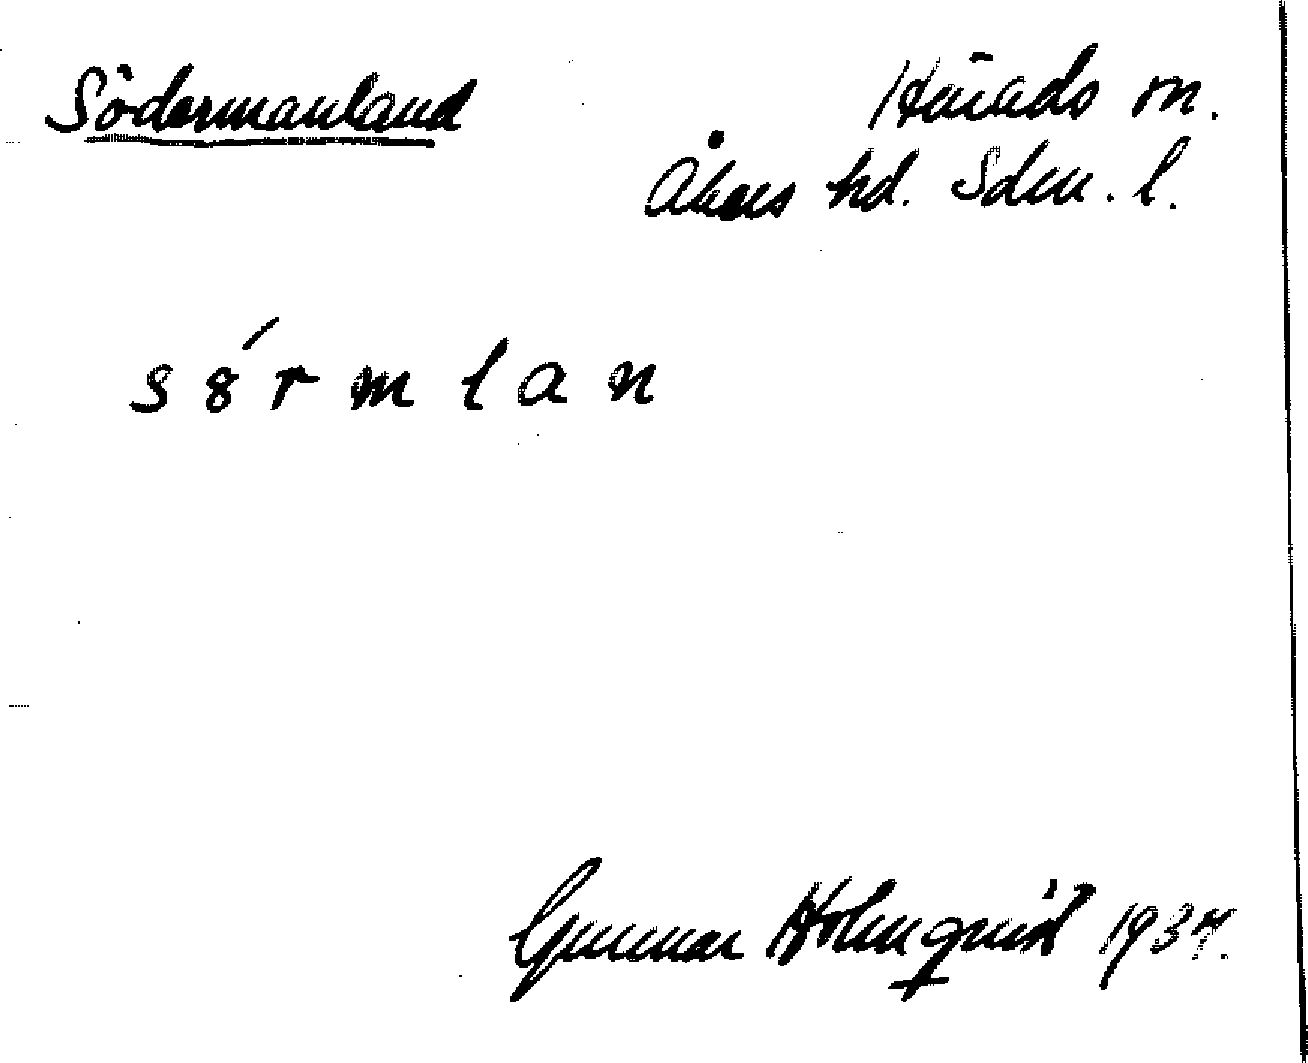 Södermanland
Härads sn.
Åkers hd. Sdm. l.
s8́rmlan
Gunnar Holmqvist 1937.